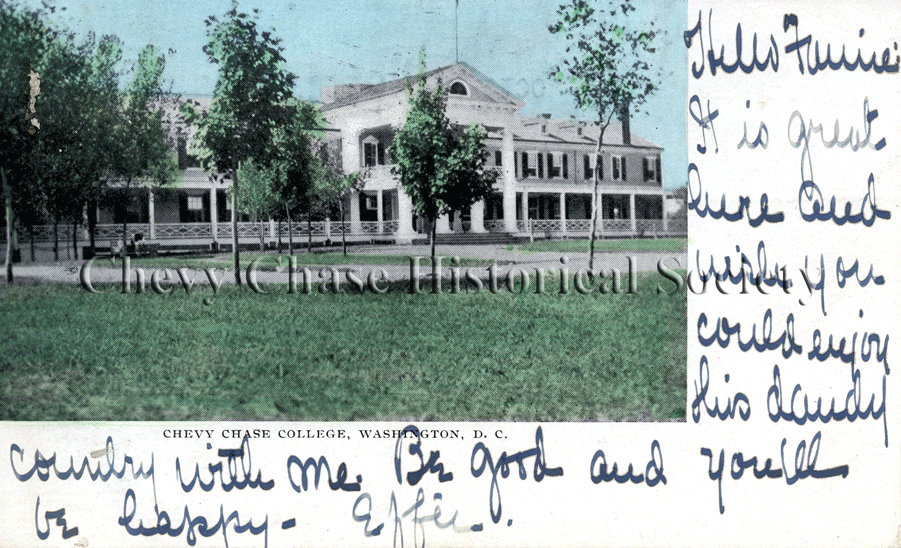 Hello Fannie:
It is great
here and
wish you
could enjoy
this dandy
Chevy Chase Historical Society
CHEVY CHASE COLLEGE, WASHINGTON, D. C.
country with me. Be good and you'll
be happy - Effie.